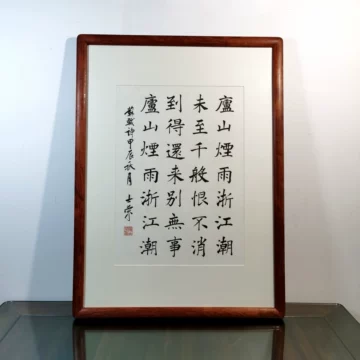 廬山煙雨浙江潮
未至千般恨不消
到得還来別無事
廬山煙雨浙江潮
蘇軾詩甲辰秋月